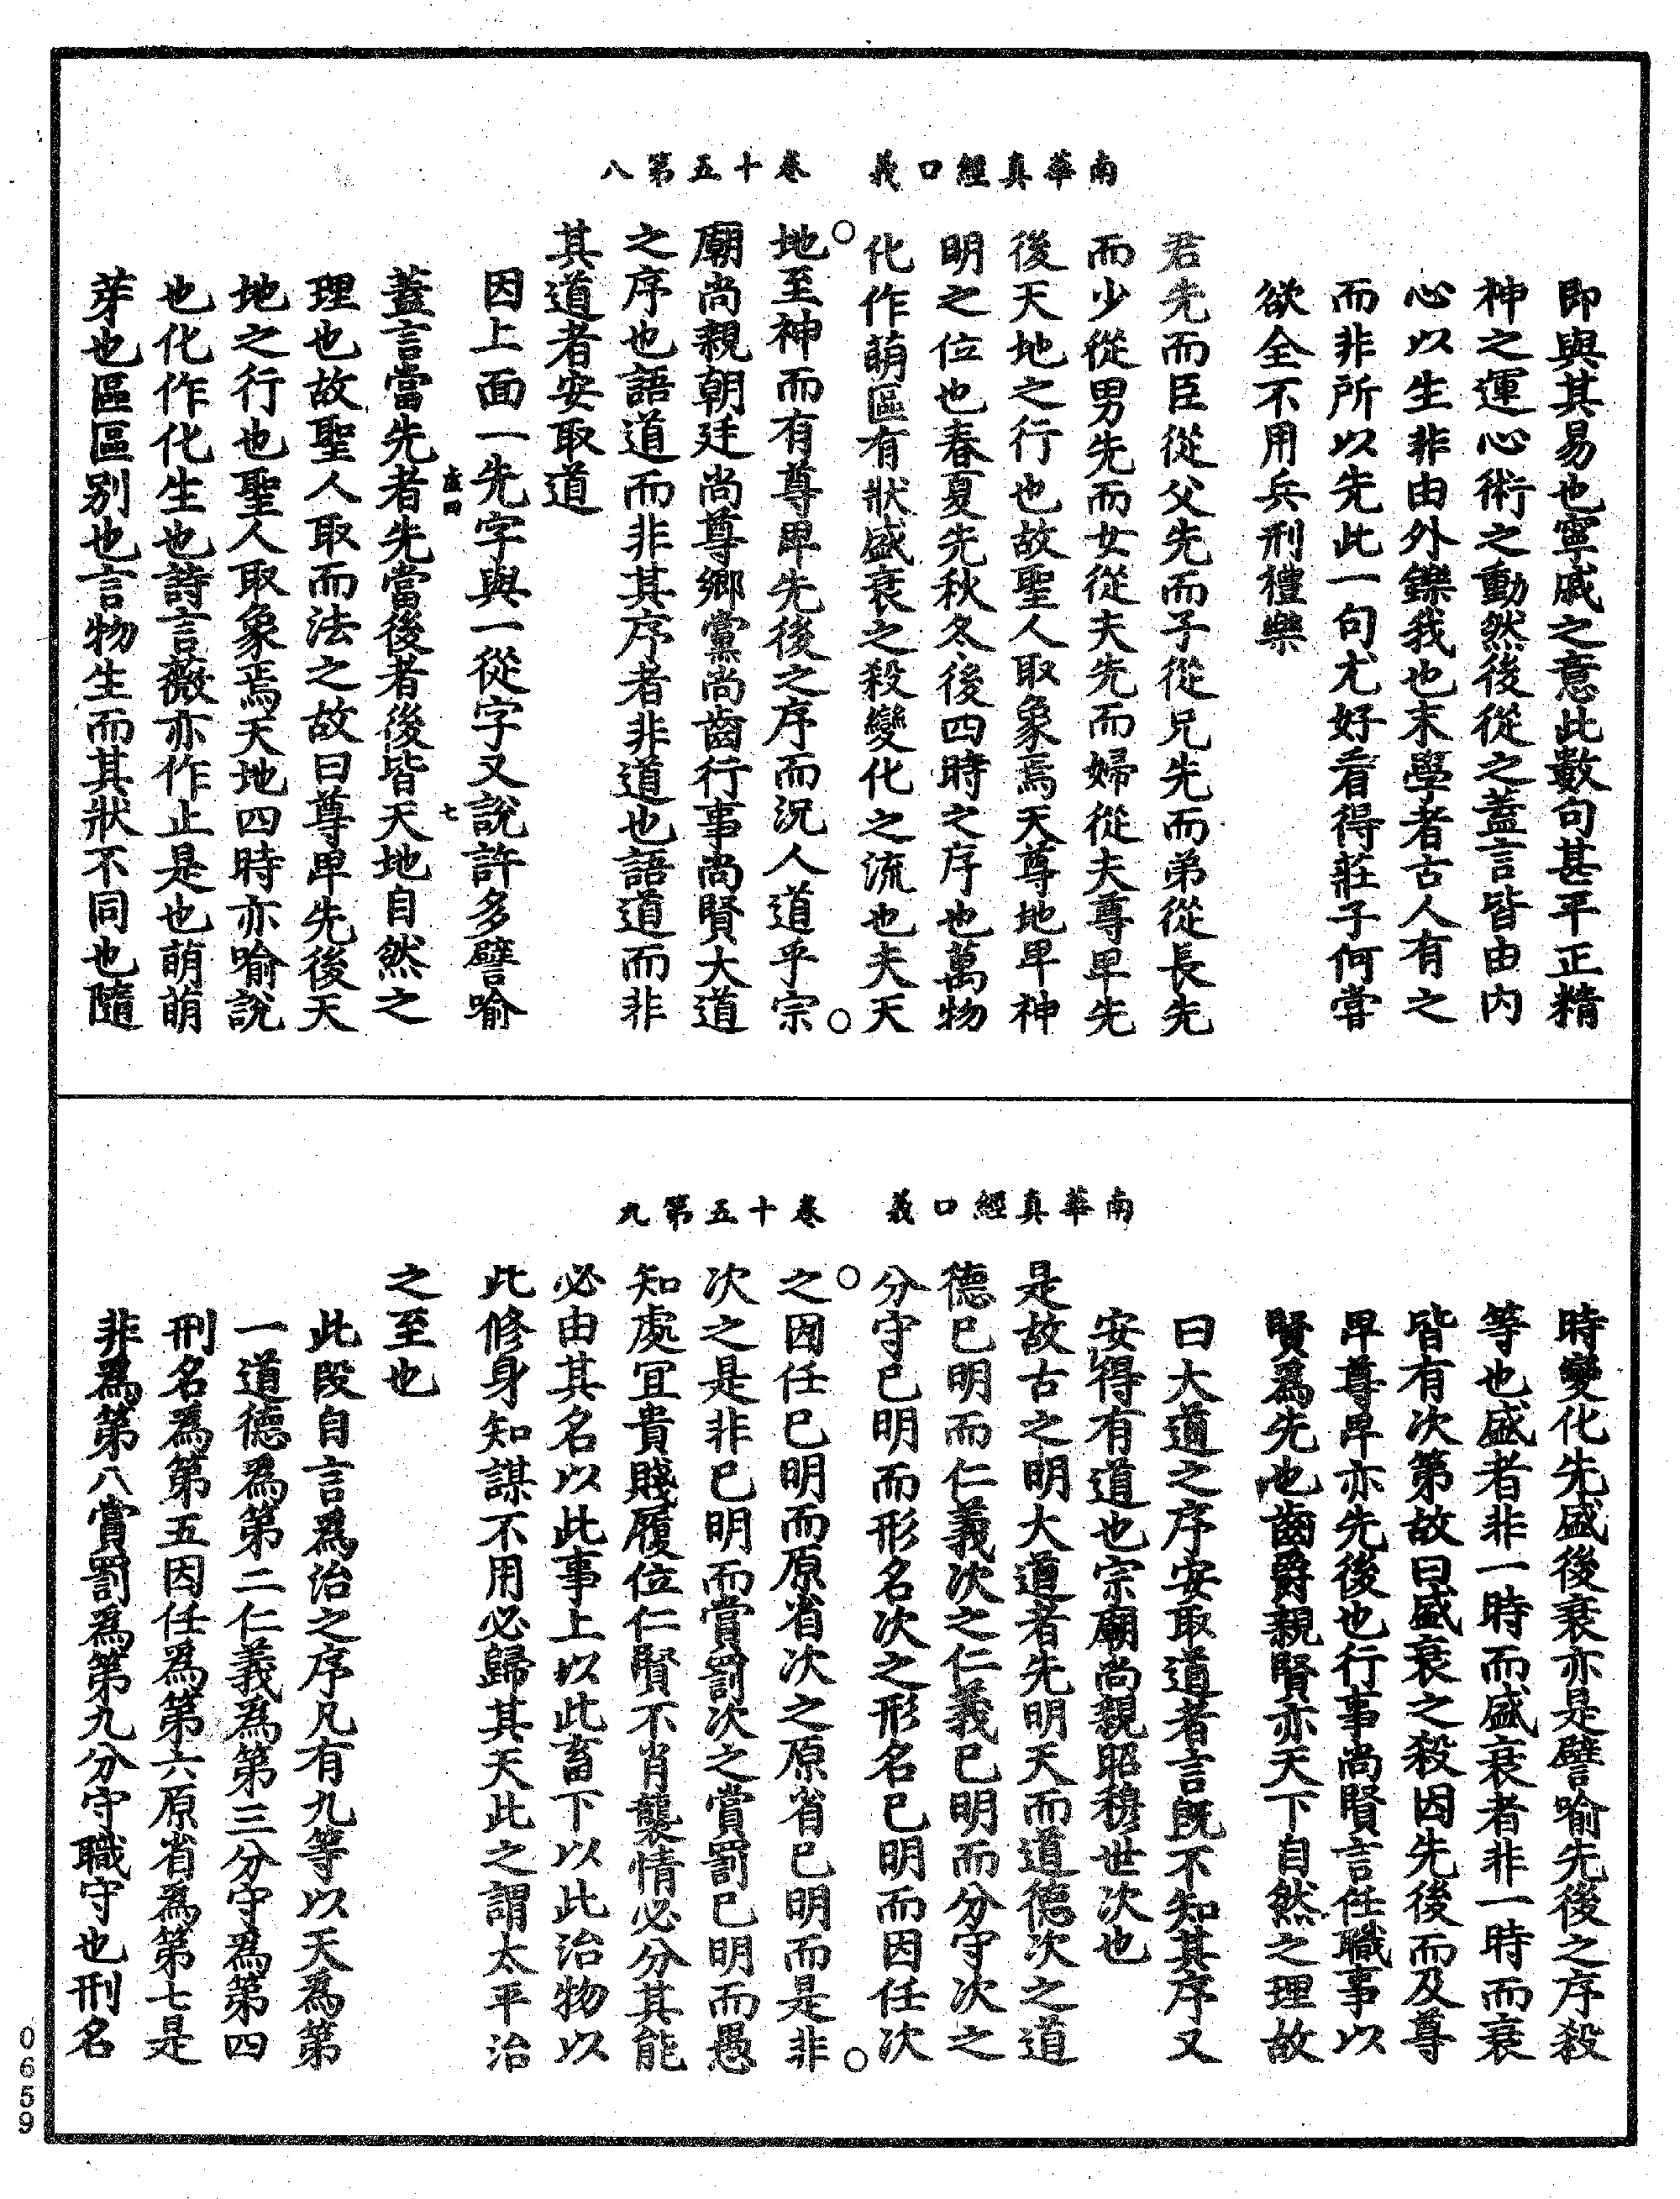 南華真經口義　卷十五第八
即與其易也寧戚之意此數句甚平正精
神之運心術之動然後從之蓋言皆由內
心以生非由外鑠我也末學者古人有之
而非所以先此一句尤好看得莊子何嘗
欲全不用兵刑禮樂
君先而臣從父先而子從兄先而弟從長先
而少從男先而女從夫先而婦從夫尊卑先
後天地之行也故聖人取象焉天尊地卑神
明之位也春夏先秋冬後四時之序也萬物
化作萌區有狀盛衰之殺變化之流也夫天
地至神而有尊卑先後之序而況人道乎宗
廟尚親朝廷尚尊鄉黨尚齒行事尚賢大道
之序也語道而非其序者非道也語道而非
其道者安取道
因上面一先字與一從字又說許多譬喻
七
蓋言當先者先當後者後皆天地自然之
理也故聖人取而法之故曰尊卑先後天
地之行也聖人取象焉天地四時亦喻說
也化作化生也詩言薇亦作止是也萌萌
芽也區區別也言物生而其狀不同也隨
南華真經口義　卷十五第九
時變化先盛後衰亦是譬喻先後之序殺
等也盛者非一時而盛衰者非一時而衰
皆有次第故曰盛衰之殺因先後而及尊
卑尊卑亦先後也行事尚賢言任職事以
賢爲先也齒爵親賢亦天下自然之理故
曰大道之序安取道者言既不知其序又
安得有道也宗廟尚親昭穆世次也
是故古之明大道者先明天而道德次之道
德已明而仁義次之仁義已明而分守次之
分守已明而形名次之形名已明而因任次
之因任已明而原省次之原省已明而是非
次之是非已明而賞罰次之賞罰已明而愚
知處宜貴賤履位仁賢不肖襲情必分其能
必由其名以此事上以此畜下以此治物以
此修身知謀不用必歸其天此之謂太平治
之至也
此段自言爲治之序凡有九等以天爲第
一道德爲第二仁義爲第三分守爲第四
刑名爲第五因任爲第六原省爲第七是
非爲第八賞罰爲第九分守職守也刑名
0659